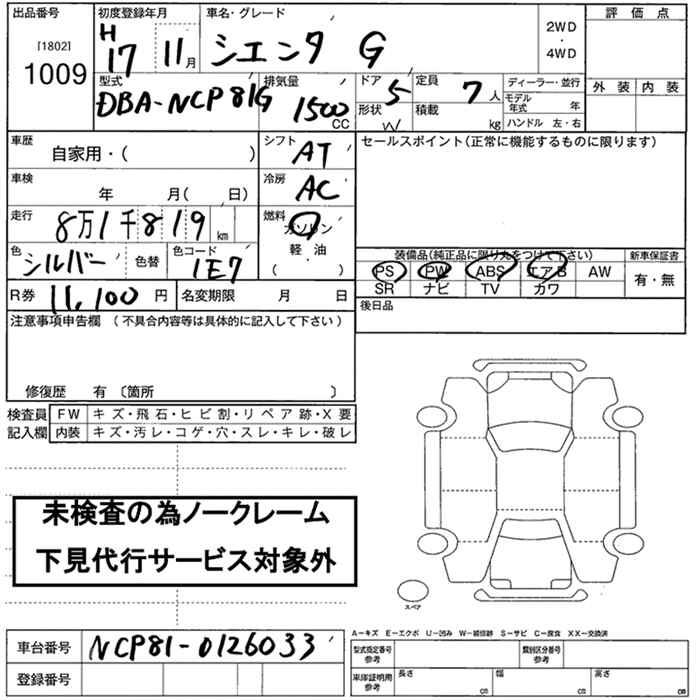 出品番号 初度登録年月 車名・グレード 評価点
[1802] H 2WD
1009 17 11月 シエンタ G ・
4WD
型式 排気量 ドア 定員 ディーラー・並行 外装 内装
DBA-NCP81G 1500 CC 5 7人 モデル年式 年
形状 W 積載 kg ハンドル 左・右
車歴 自家用・( ) シフト AT セールスポイント(正常に機能するものに限ります)
車検 年 月( 日) 冷房 AC
走行 8万1千819 km 燃料 ガソリン
軽・油
( )
色 シルバー 色替 色コード 1E7 装備品(純正品に限り丸をつけて下さい) 新車保証書
PS PW ABS エアB AW 有・無
R券 11,100 円 名変期限 月 日 SR ナビ TV カワ
注意事項申告欄 (不具合内容等は具体的に記入して下さい) 後日品
修復歴 有 〔箇所 〕
検査員 FW キズ・飛石・ヒビ割・リペア跡・X要
記入欄 内装 キズ・汚レ・コゲ・穴・スレ・キレ・破レ
未検査の為ノークレーム
下見代行サービス対象外
スペア
A-キズ E-エクボ U-凹み W-補修跡 S-サビ C-腐食 XX-交換済
車台番号 NCP81-0126033 型式指定番号 参考 類別区分番号 参考
登録番号 車庫証明用 参考 長さ cm 幅 cm 高さ cm